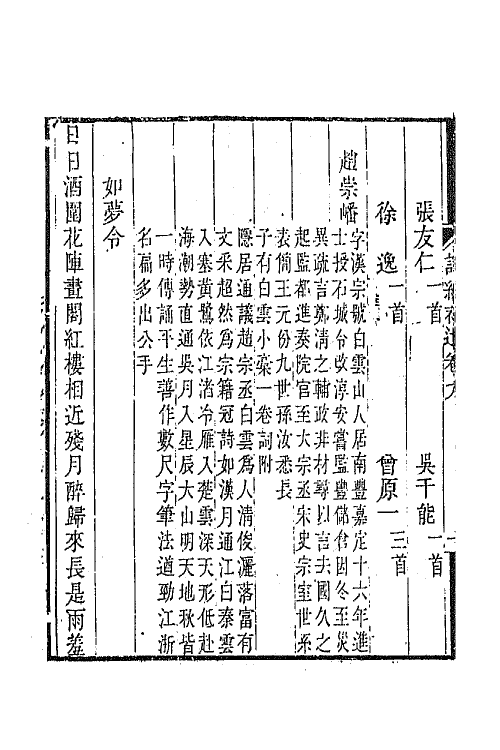 張友仁一首　吳千能一首
徐逸一首　曾原一三首
趙崇嶓
字漢宗號白雲山人居南豐嘉定十六年進
士授石城令改淳安嘗監豐儲倉因冬至災
異疏言鄭清之輔政非材尋以言去國久之
起監都進奏院官至大宗丞宋史宗室世系
表簡王元份九世孫汝悉長
子有白雲小藁一卷詞附
隱居通議趙宗丞白雲爲人清俊灑落富有
文采超然爲宗籍冠詩如漢月通江白秦雲
入塞黃鷺依江渚冷雁入楚雲深天形低赴
海潮勢直通吳月入星辰大山明天地秋皆
一時傳誦平生善作數尺字筆法遒勁江浙
名扁多出公手
如夢令
日日酒圍花陣畫閣紅樓相近殘月醉歸來長是雨羞